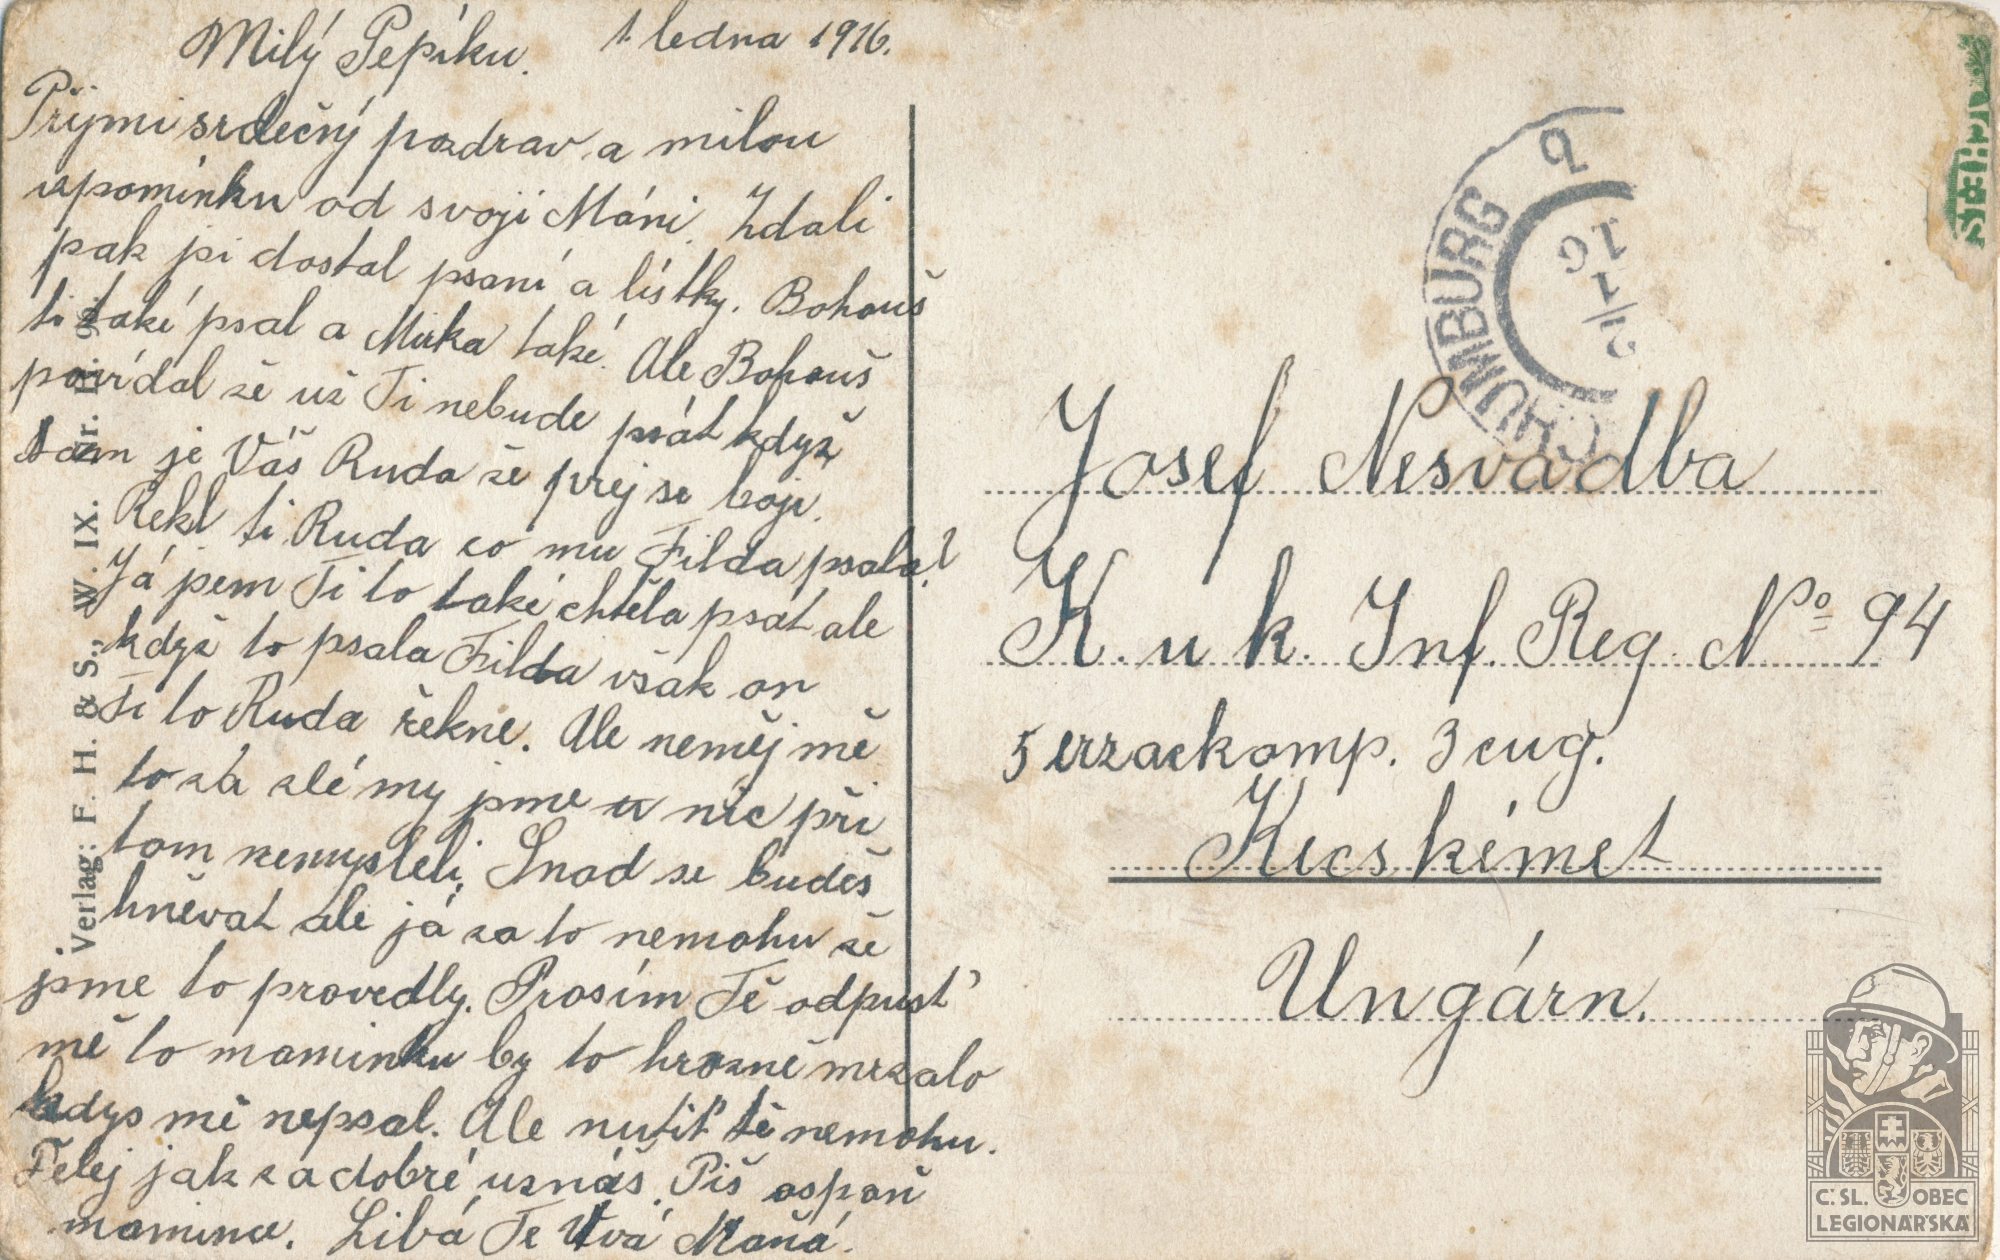 Milý Pepíku. 1. ledna 1916.
Přijmi srdečný pozdrav a milou
vzpomínku od svoji Máni. Zdali
pak jsi dostal psaní a lístky. Bohouš
ti také psal a Mirka také. Ale Bohouš
povídal že už Ti nebude psát když
tam je Váš Ruda že prej se boji.
Rekl ti Ruda co mu Filda psala?
Já jsem Ti to také chtěla psát ale
když to psala Filda však on
Ti to Ruda řekne. Ale neměj mě
to zá zlé my jsme u nic při
tom nemysleli. Snad se budeš
hněvat ale já za to nemohu že
jsme to provedly. Prosím Tě odpusť
mě to maminku by to hrozně mrzalo
kdys mě nepsal. Ale nutit tě nemohu.
Telej jak za dobré uznáš. Piš aspoň
mamince. Líbá Tě Tvá Máňa.
Verlag: F. H. & S., W. IX. Nr.
CHUMBURG
2/1 16
Josef Nesvadba
K. u k. Inf. Reg. Nº 94
5 erzackomp. 3 cug.
Kecskémet
Ungárn.
Č. SL. OBEC
LEGIONÁŘSKÁ